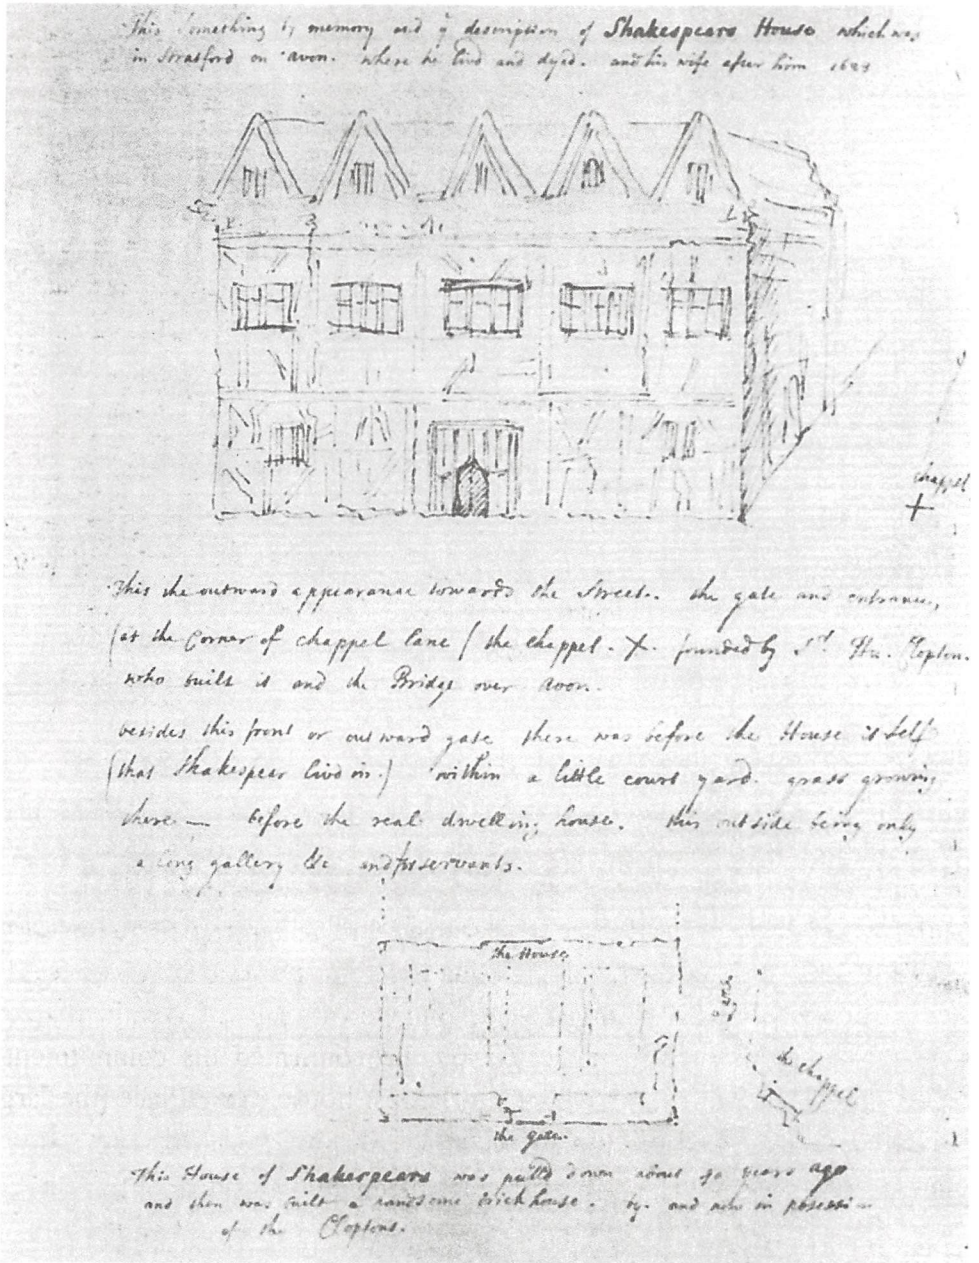 This Something by memory and yͤ description of Shakespears House which was
in Stratford on avon. where he livd and dyed. and his wife after him 1623
chappel
This the outward appearance towards the Street. the gate and entrance,
(at the Corner of chappel lane / the chappel. X. founded by Sʳ Hu. Clopton.
who built it and the Bridge over avon.
besides this front or outward gate there was before the House it self
(that Shakespear livd in.) within a little court yard. grass growing
there — before the real dwelling house. this outside being only
a long gallery &c and for servants.
the House
Lane
the chappel
the gate.
This House of Shakespears was pulld down about 40 years ago
and then was built a handsome brick house. by. and now in possession
of the Cloptons.